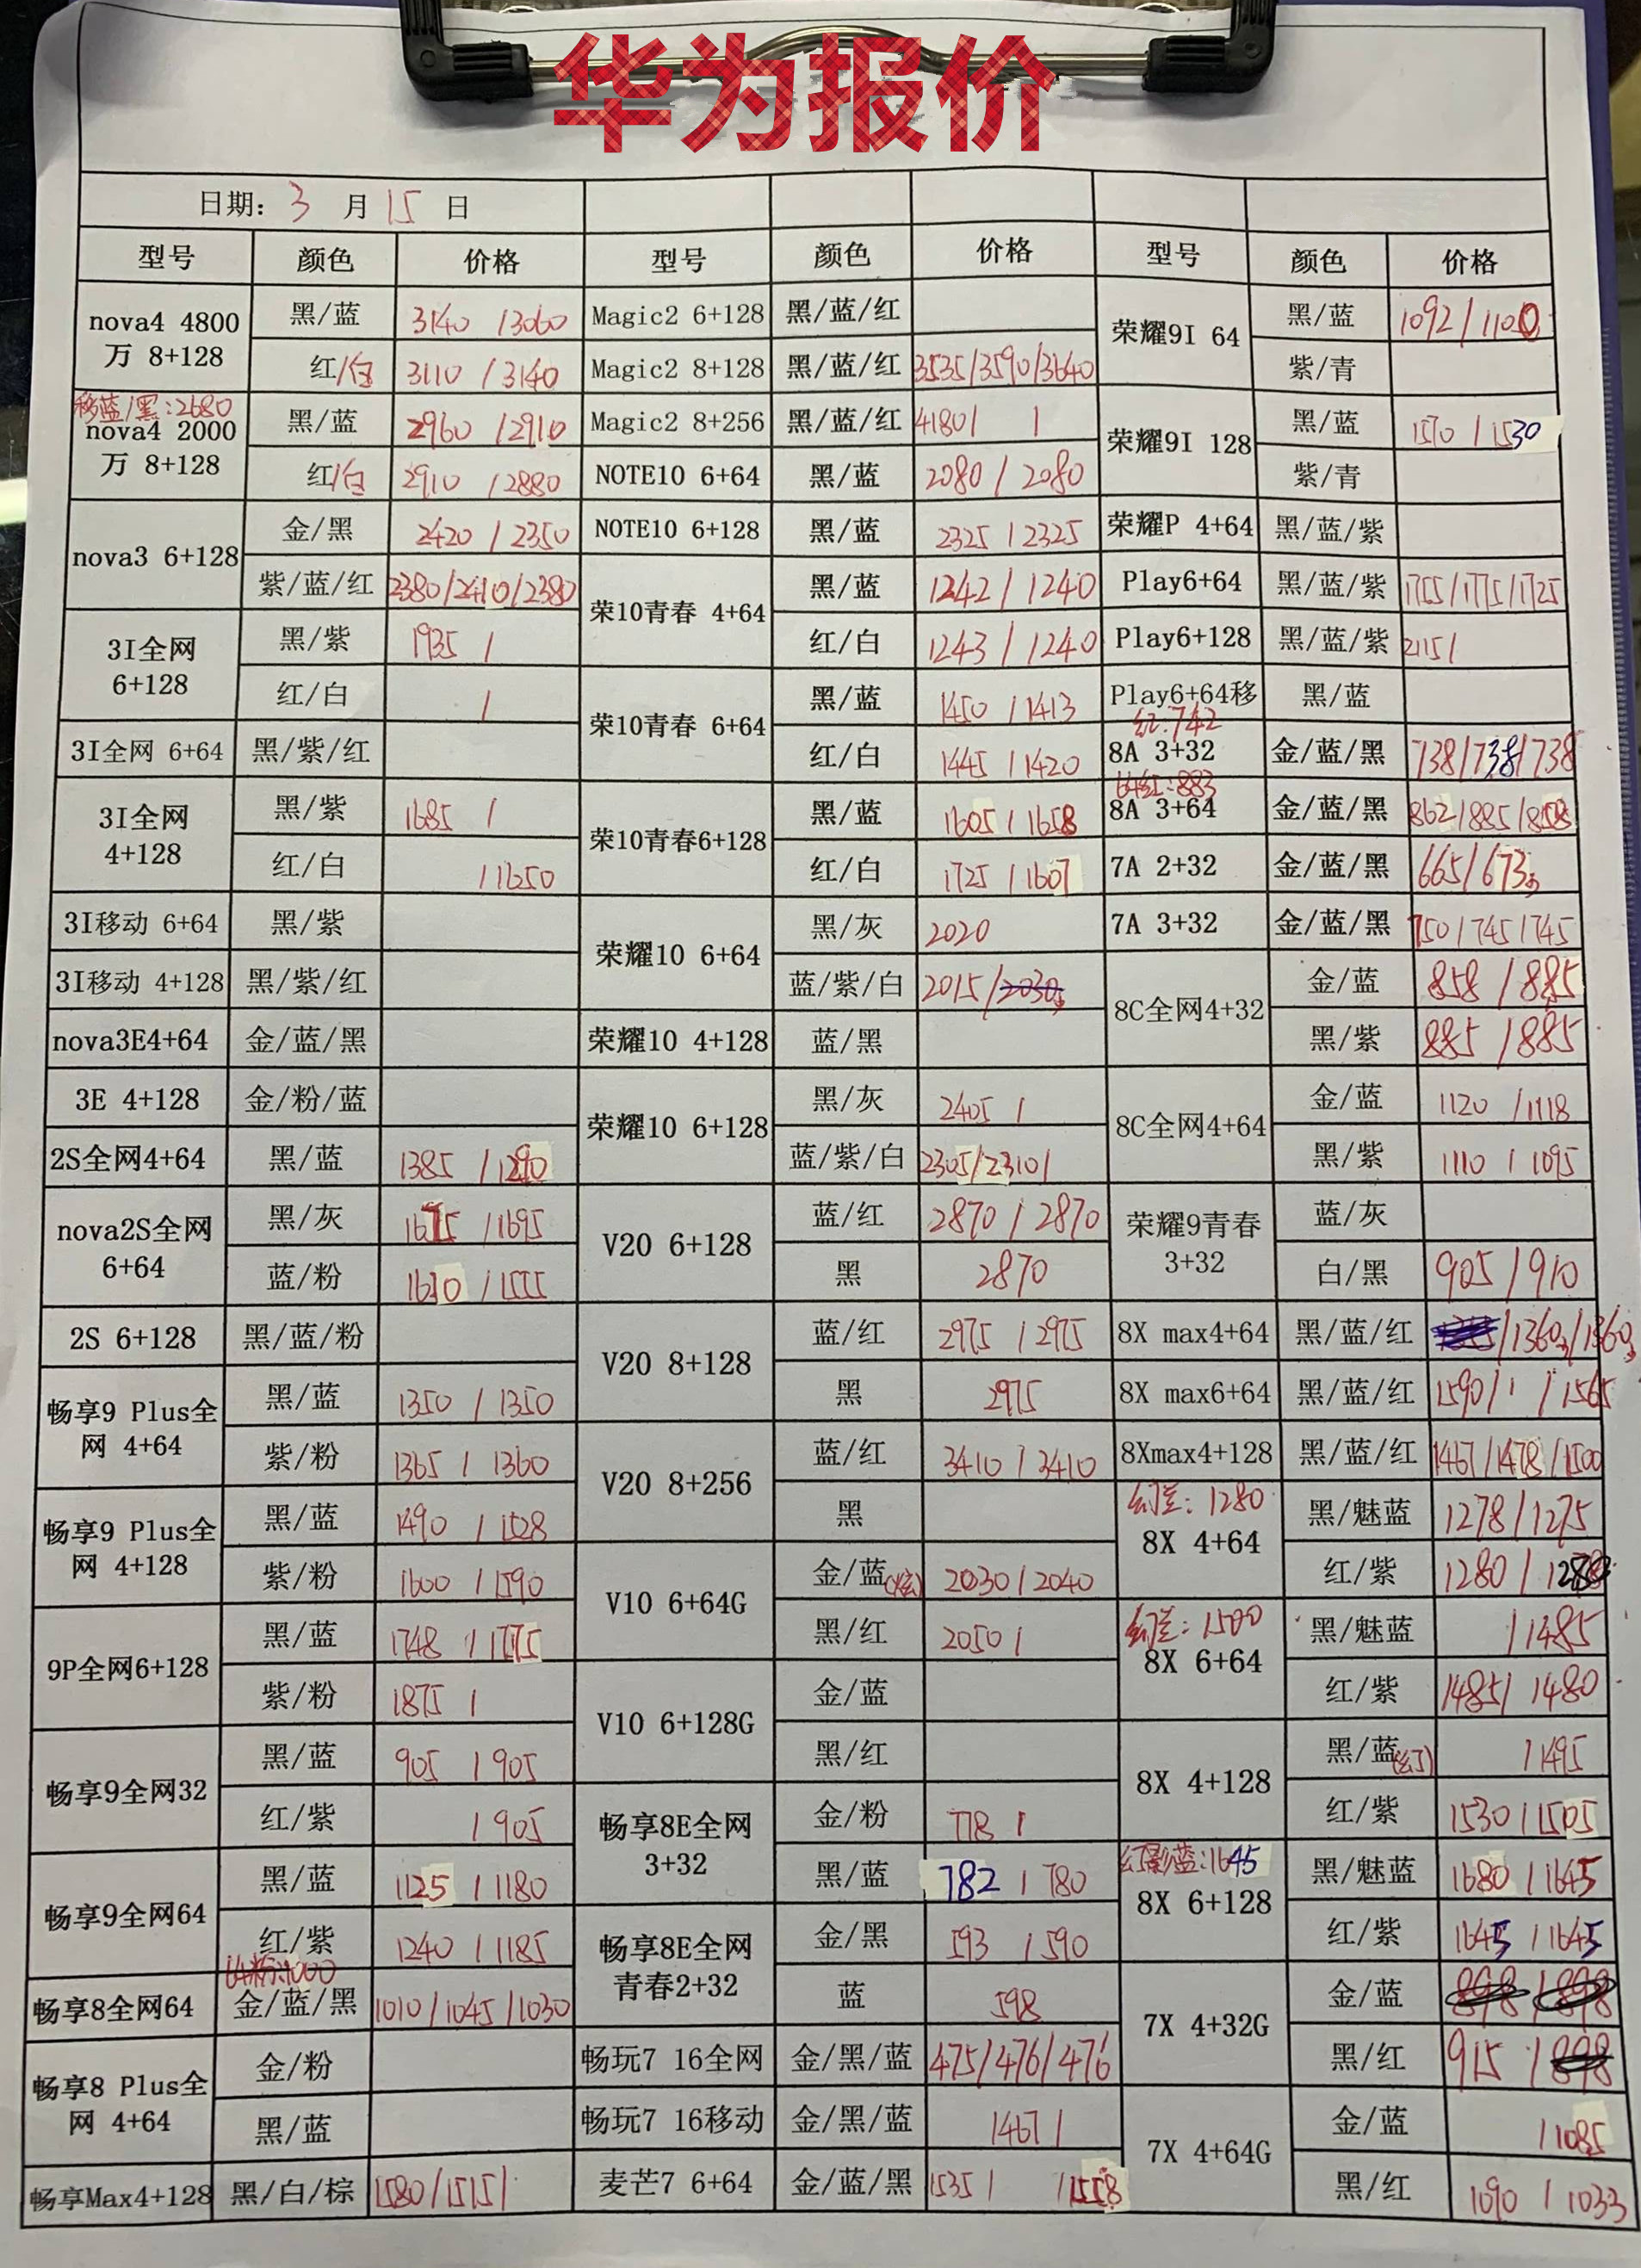 华为报价
日期: 3 月 15 日
型号 颜色 价格 型号 颜色 价格 型号 颜色 价格
nova4 4800万 8+128 黑/蓝 3140 /3060 Magic2 6+128 黑/蓝/红 荣耀9I 64 黑/蓝 1092/1120
红/白 3110 /3140 Magic2 8+128 黑/蓝/红 3535/3590/3640 紫/青
移蓝/黑:2680
nova4 2000万 8+128 黑/蓝 2960 /2910 Magic2 8+256 黑/蓝/红 4180/ / 荣耀9I 128 黑/蓝 1570 /1530
红/白 2910 /2880 NOTE10 6+64 黑/蓝 2080 / 2080 紫/青
nova3 6+128 金/黑 2420 / 2350 NOTE10 6+128 黑/蓝 2325 / 2325 荣耀P 4+64 黑/蓝/紫
紫/蓝/红 2380/2410/2380 荣10青春 4+64 黑/蓝 1242 / 1240 Play6+64 黑/蓝/紫 1755/1775/1725
3I全网 6+128 黑/紫 1935 / 红/白 1243 / 1240 Play6+128 黑/蓝/紫 2115/
红/白 / 荣10青春 6+64 黑/蓝 1450 / 1413 Play6+64移 黑/蓝
红:742
3I全网 6+64 黑/紫/红 红/白 1445 / 1420 8A 3+32 金/蓝/黑 738/738/738
64红:883
3I全网 4+128 黑/紫 1685 / 荣10青春6+128 黑/蓝 1605 / 1658 8A 3+64 金/蓝/黑 862/885/858
红/白 /1650 红/白 1725 / 1607 7A 2+32 金/蓝/黑 665/673
3I移动 6+64 黑/紫 荣耀10 6+64 黑/灰 2020 7A 3+32 金/蓝/黑 750/745/745
3I移动 4+128 黑/紫/红 蓝/紫/白 2015/2030 8C全网4+32 金/蓝 858 /885
nova3E4+64 金/蓝/黑 荣耀10 4+128 蓝/黑 黑/紫 885 /885
3E 4+128 金/粉/蓝 荣耀10 6+128 黑/灰 2405 / 8C全网4+64 金/蓝 1120 /1118
2S全网4+64 黑/蓝 1385 /1290 蓝/紫/白 2305/2310/ 黑/紫 1110 / 1095
nova2S全网 6+64 黑/灰 1675 /1695 V20 6+128 蓝/红 2870 / 2870 荣耀9青春 3+32 蓝/灰
蓝/粉 1610 /1555 黑 2870 白/黑 905/910
2S 6+128 黑/蓝/粉 V20 8+128 蓝/红 2975 / 2975 8X max4+64 黑/蓝/红 /1360/1360
畅享9 Plus全网 4+64 黑/蓝 1350 / 1350 黑 2975 8X max6+64 黑/蓝/红 1590/ / /1565
紫/粉 1365 / 1360 V20 8+256 蓝/红 3410 / 3410 8Xmax4+128 黑/蓝/红 1467/1478/1500
畅享9 Plus全网 4+128 黑/蓝 1490 / 1528 黑 幻兰: 1280 8X 4+64 黑/魅蓝 1278/1275
紫/粉 1600 / 1590 V10 6+64G 金/蓝(炫) 2030 / 2040 红/紫 1280 / 1280
9P全网6+128 黑/蓝 1748 / 1775 黑/红 2050 / 幻兰: 1500 8X 6+64 黑/魅蓝 /1485
紫/粉 1875 / V10 6+128G 金/蓝 红/紫 1485/ 1480
畅享9全网32 黑/蓝 905 / 905 黑/红 8X 4+128 黑/蓝(幻) /1495
红/紫 / 905 畅享8E全网 3+32 金/粉 778 / 红/紫 1530 / 1505
畅享9全网64 黑/蓝 1125 / 1180 黑/蓝 782 / 780 幻影蓝:1645 8X 6+128 黑/魅蓝 1680 / 1645
红/紫 1240 / 1185 畅享8E全网青春2+32 金/黑 593 / 590 红/紫 1645 / 1645
64粉:1000
畅享8全网64 金/蓝/黑 1010/1045/1030 蓝 598 7X 4+32G 金/蓝 898 / 898
畅享8 Plus全网 4+64 金/粉 畅玩7 16全网 金/黑/蓝 475/476/476 黑/红 915 / 898
黑/蓝 畅玩7 16移动 金/黑/蓝 /467/ 7X 4+64G 金/蓝 /1085
畅享Max4+128 黑/白/棕 1580/1515/ 麦芒7 6+64 金/蓝/黑 1535 / /1558 黑/红 1090 / 1033